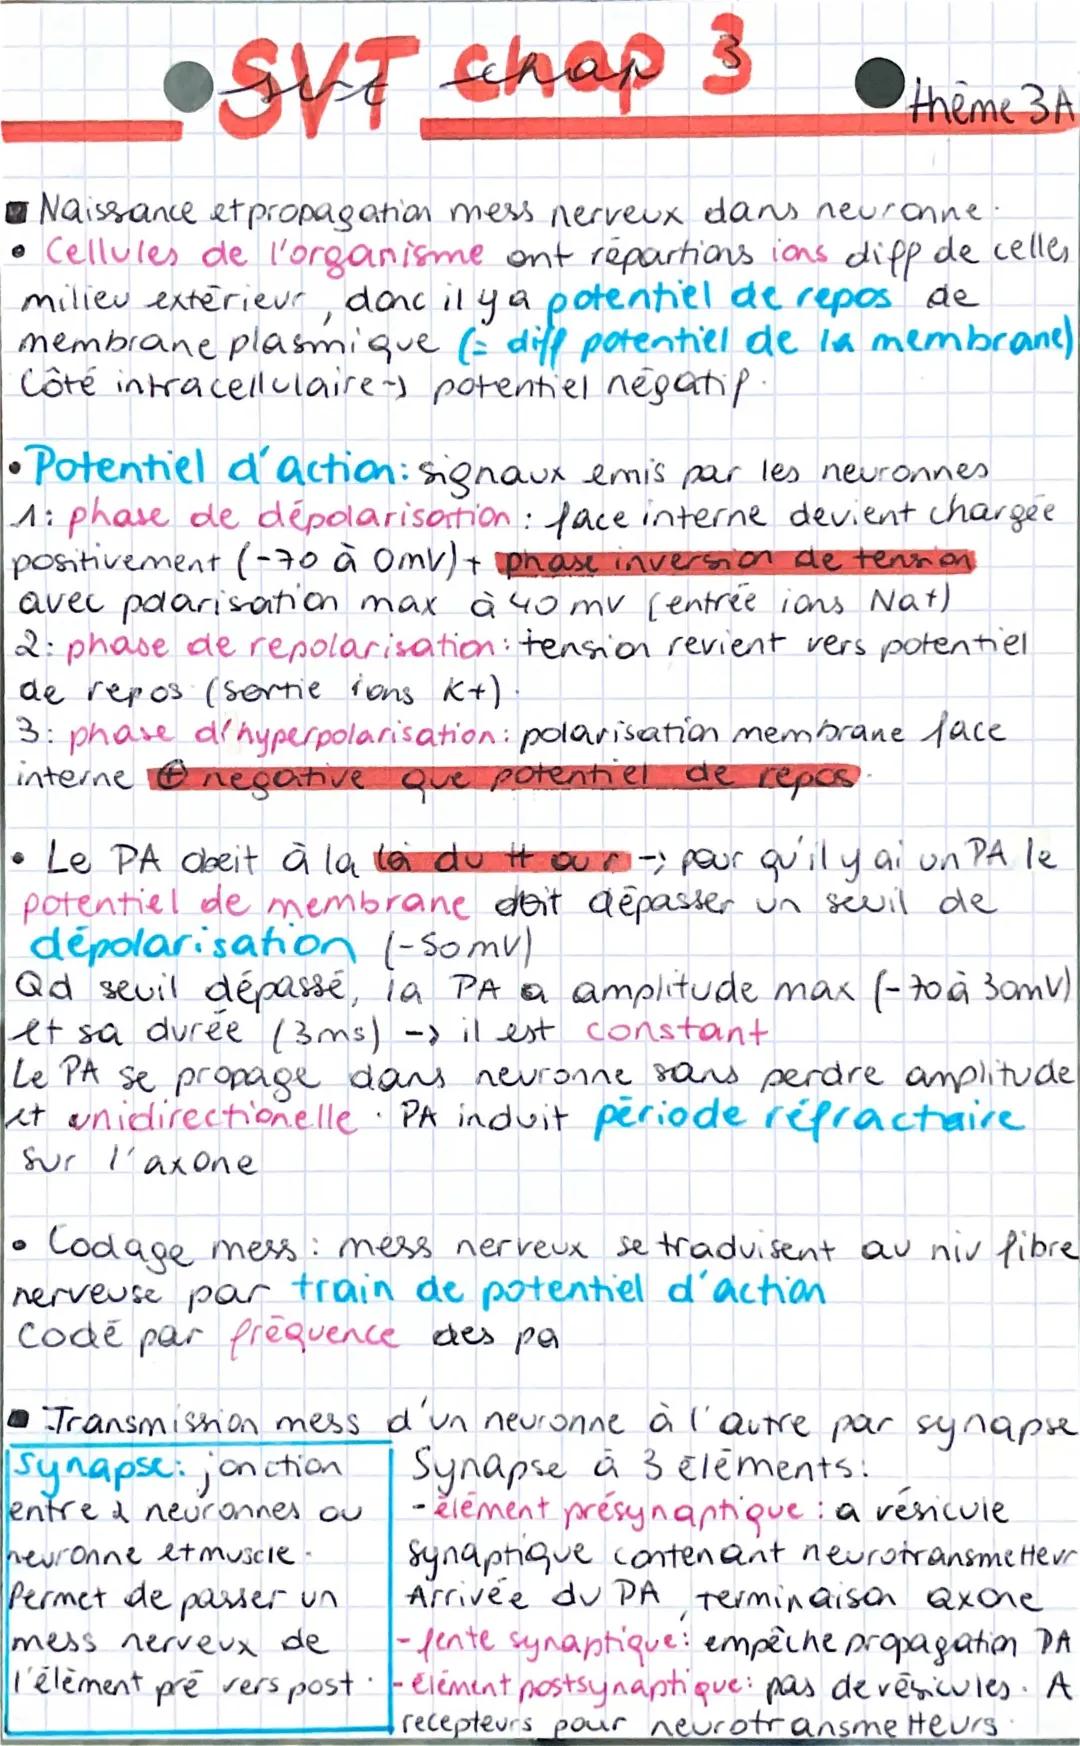 SVT chap 3
svt chap 3
thème 3A
Naissance et propagation mess nerveux dans neuronne.
• Cellules de l'organisme ont répartions ions diff de celles
milieu extérieur, donc il y a potentiel de repos de
membrane plasmique (= diff potentiel de la membrane)
Côté intracellulaire -> potentiel négatif.
• Potentiel d'action: signaux emis par les neuronnes
1: phase de dépolarisation : face interne devient chargée
positivement (-70 à 0mV) + phase inversion de tension
avec polarisation max à 40 mv (entrée ions Na+)
2: phase de repolarisation: tension revient vers potentiel
de repos (sortie ions K+).
3: phase d'hyperpolarisation: polarisation membrane face
interne ⊕ negative que potentiel de repos.
• Le PA obeit à la loi du # our -> pour qu'il y ai un PA le
potentiel de membrane doit dépasser un seuil de
dépolarisation (-50mV)
Qd seuil dépassé, la PA a amplitude max (-70 à 30mV)
et sa durée (3ms) -> il est constant
Le PA se propage dans neuronne sans perdre amplitude
et unidirectionelle. PA induit période réfractaire
sur l'axone
• Codage mess: mess nerveux se traduisent au niv fibre
nerveuse par train de potentiel d'action
Codé par fréquence des pa
Transmission mess d'un neuronne à l'autre par synapse
Synapse: jonction
entre 2 neuronnes ou
neuronne et muscle.
Permet de passer un
mess nerveux de
l'élément pré vers post.
Synapse à 3 éléments:
- élément présynaptique : a vésicule
synaptique contenant neurotransmetteur
Arrivée du PA, terminaison axone
- fente synaptique: empêche propagation PA
- élément postsynaptique: pas de vésicules. A
recepteurs pour neurotransmetteurs.